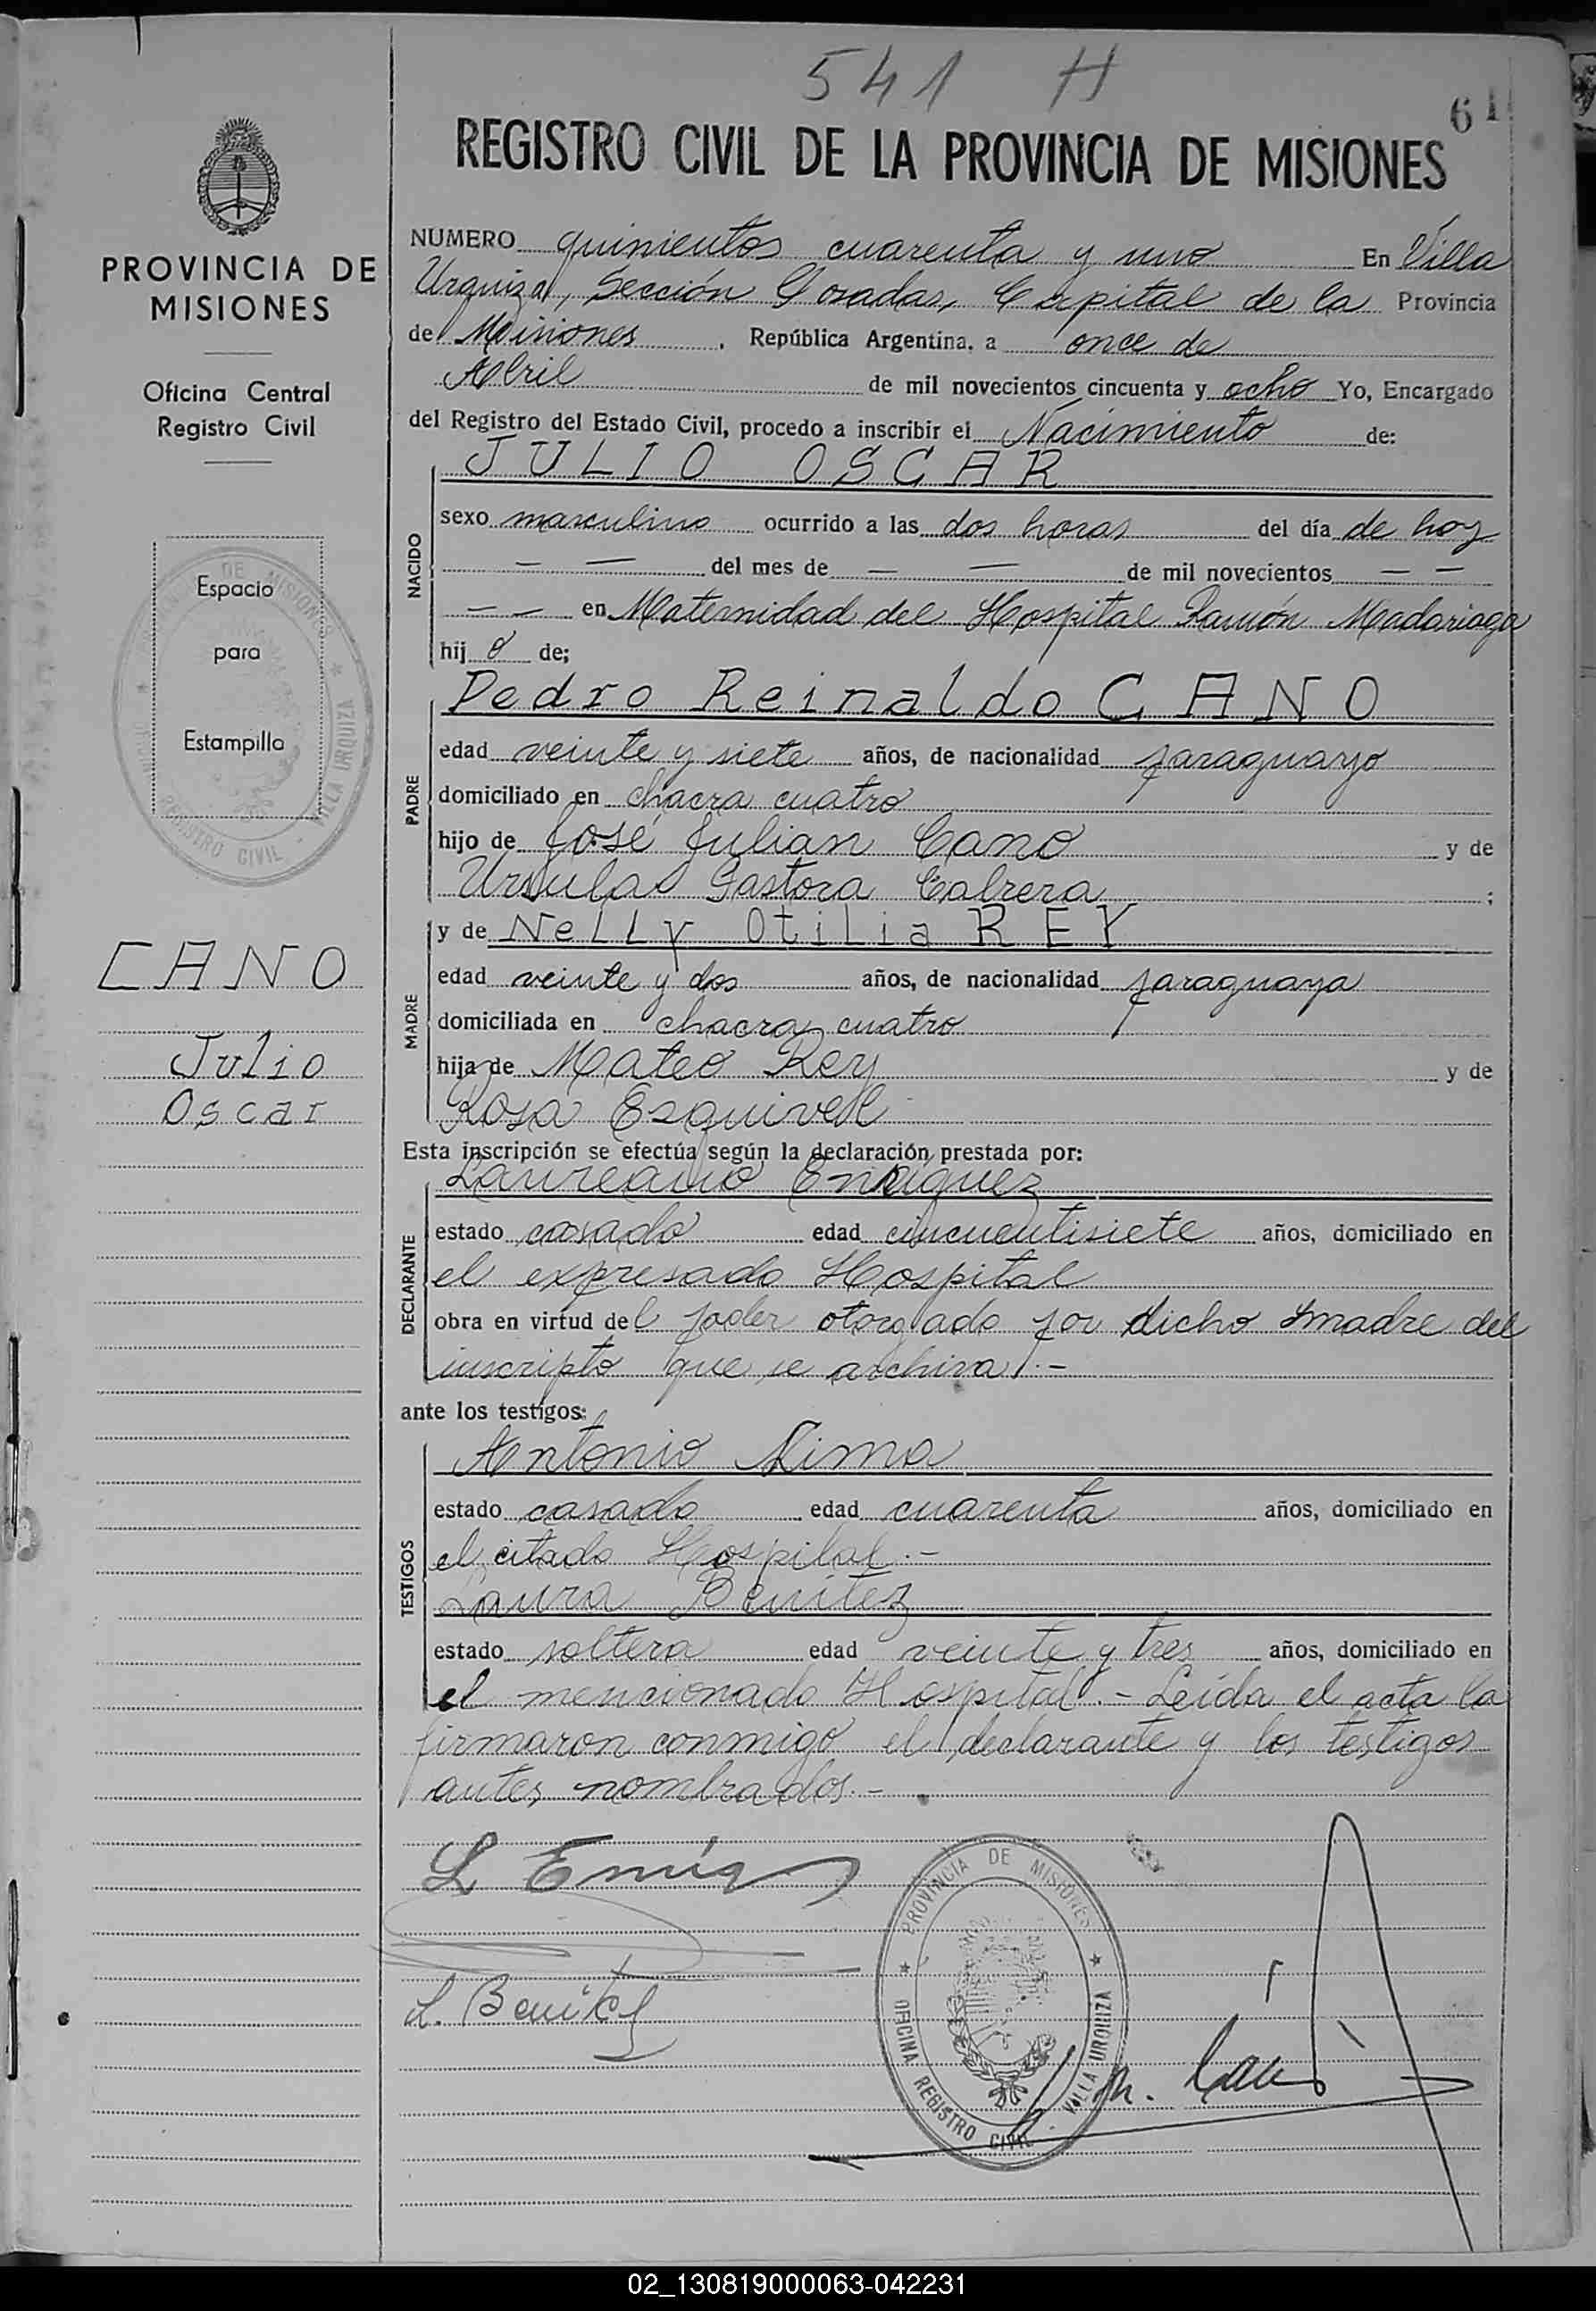 541 H
61
REGISTRO CIVIL DE LA PROVINCIA DE MISIONES
PROVINCIA DE
MISIONES
Oficina Central
Registro Civil
Espacio
para
Estampilla
CANO
Julio
Oscar
NUMERO quinientos cuarenta y uno En Villa
Urquiza, Sección Posadas, Capital de la Provincia
de Misiones, República Argentina, a once de
Abril de mil novecientos cincuenta y ocho Yo, Encargado
del Registro del Estado Civil, procedo a inscribir el Nacimiento de:
NACIDO
JULIO OSCAR
sexo masculino ocurrido a las dos horas del día de hoy
— — del mes de — — de mil novecientos — —
— — en Maternidad del Hospital Ramón Madariaga
hijo de;
PADRE
Pedro Reinaldo CANO
edad veinte y siete años, de nacionalidad paraguayo
domiciliado en chacra cuatro
hijo de José Julian Cano y de
Ursula Pastora Cabrera ;
MADRE
y de Nelly Otilia REY
edad veinte y dos años, de nacionalidad paraguaya
domiciliada en chacra cuatro
hija de Mateo Rey y de
Rosa Esquivel
Esta inscripción se efectúa según la declaración prestada por:
DECLARANTE
Laureano Enriquez
estado casado edad cincuentisiete años, domiciliado en
el expresado Hospital
obra en virtud del poder otorgado por dicho madre del
inscripto que se archiva.-
ante los testigos:
TESTIGOS
Antonio Lima
estado casado edad cuarenta años, domiciliado en
el citado Hospital.-
Laura Benitez
estado soltera edad veinte y tres años, domiciliado en
el mencionado Hospital.- Leída el acta la
firmaron conmigo el declarante y los testigos
antes nombrados.-
L. Benitez
PROVINCIA DE MISIONES
OFICINA REGISTRO CIVIL - VILLA URQUIZA
02_130819000063-042231